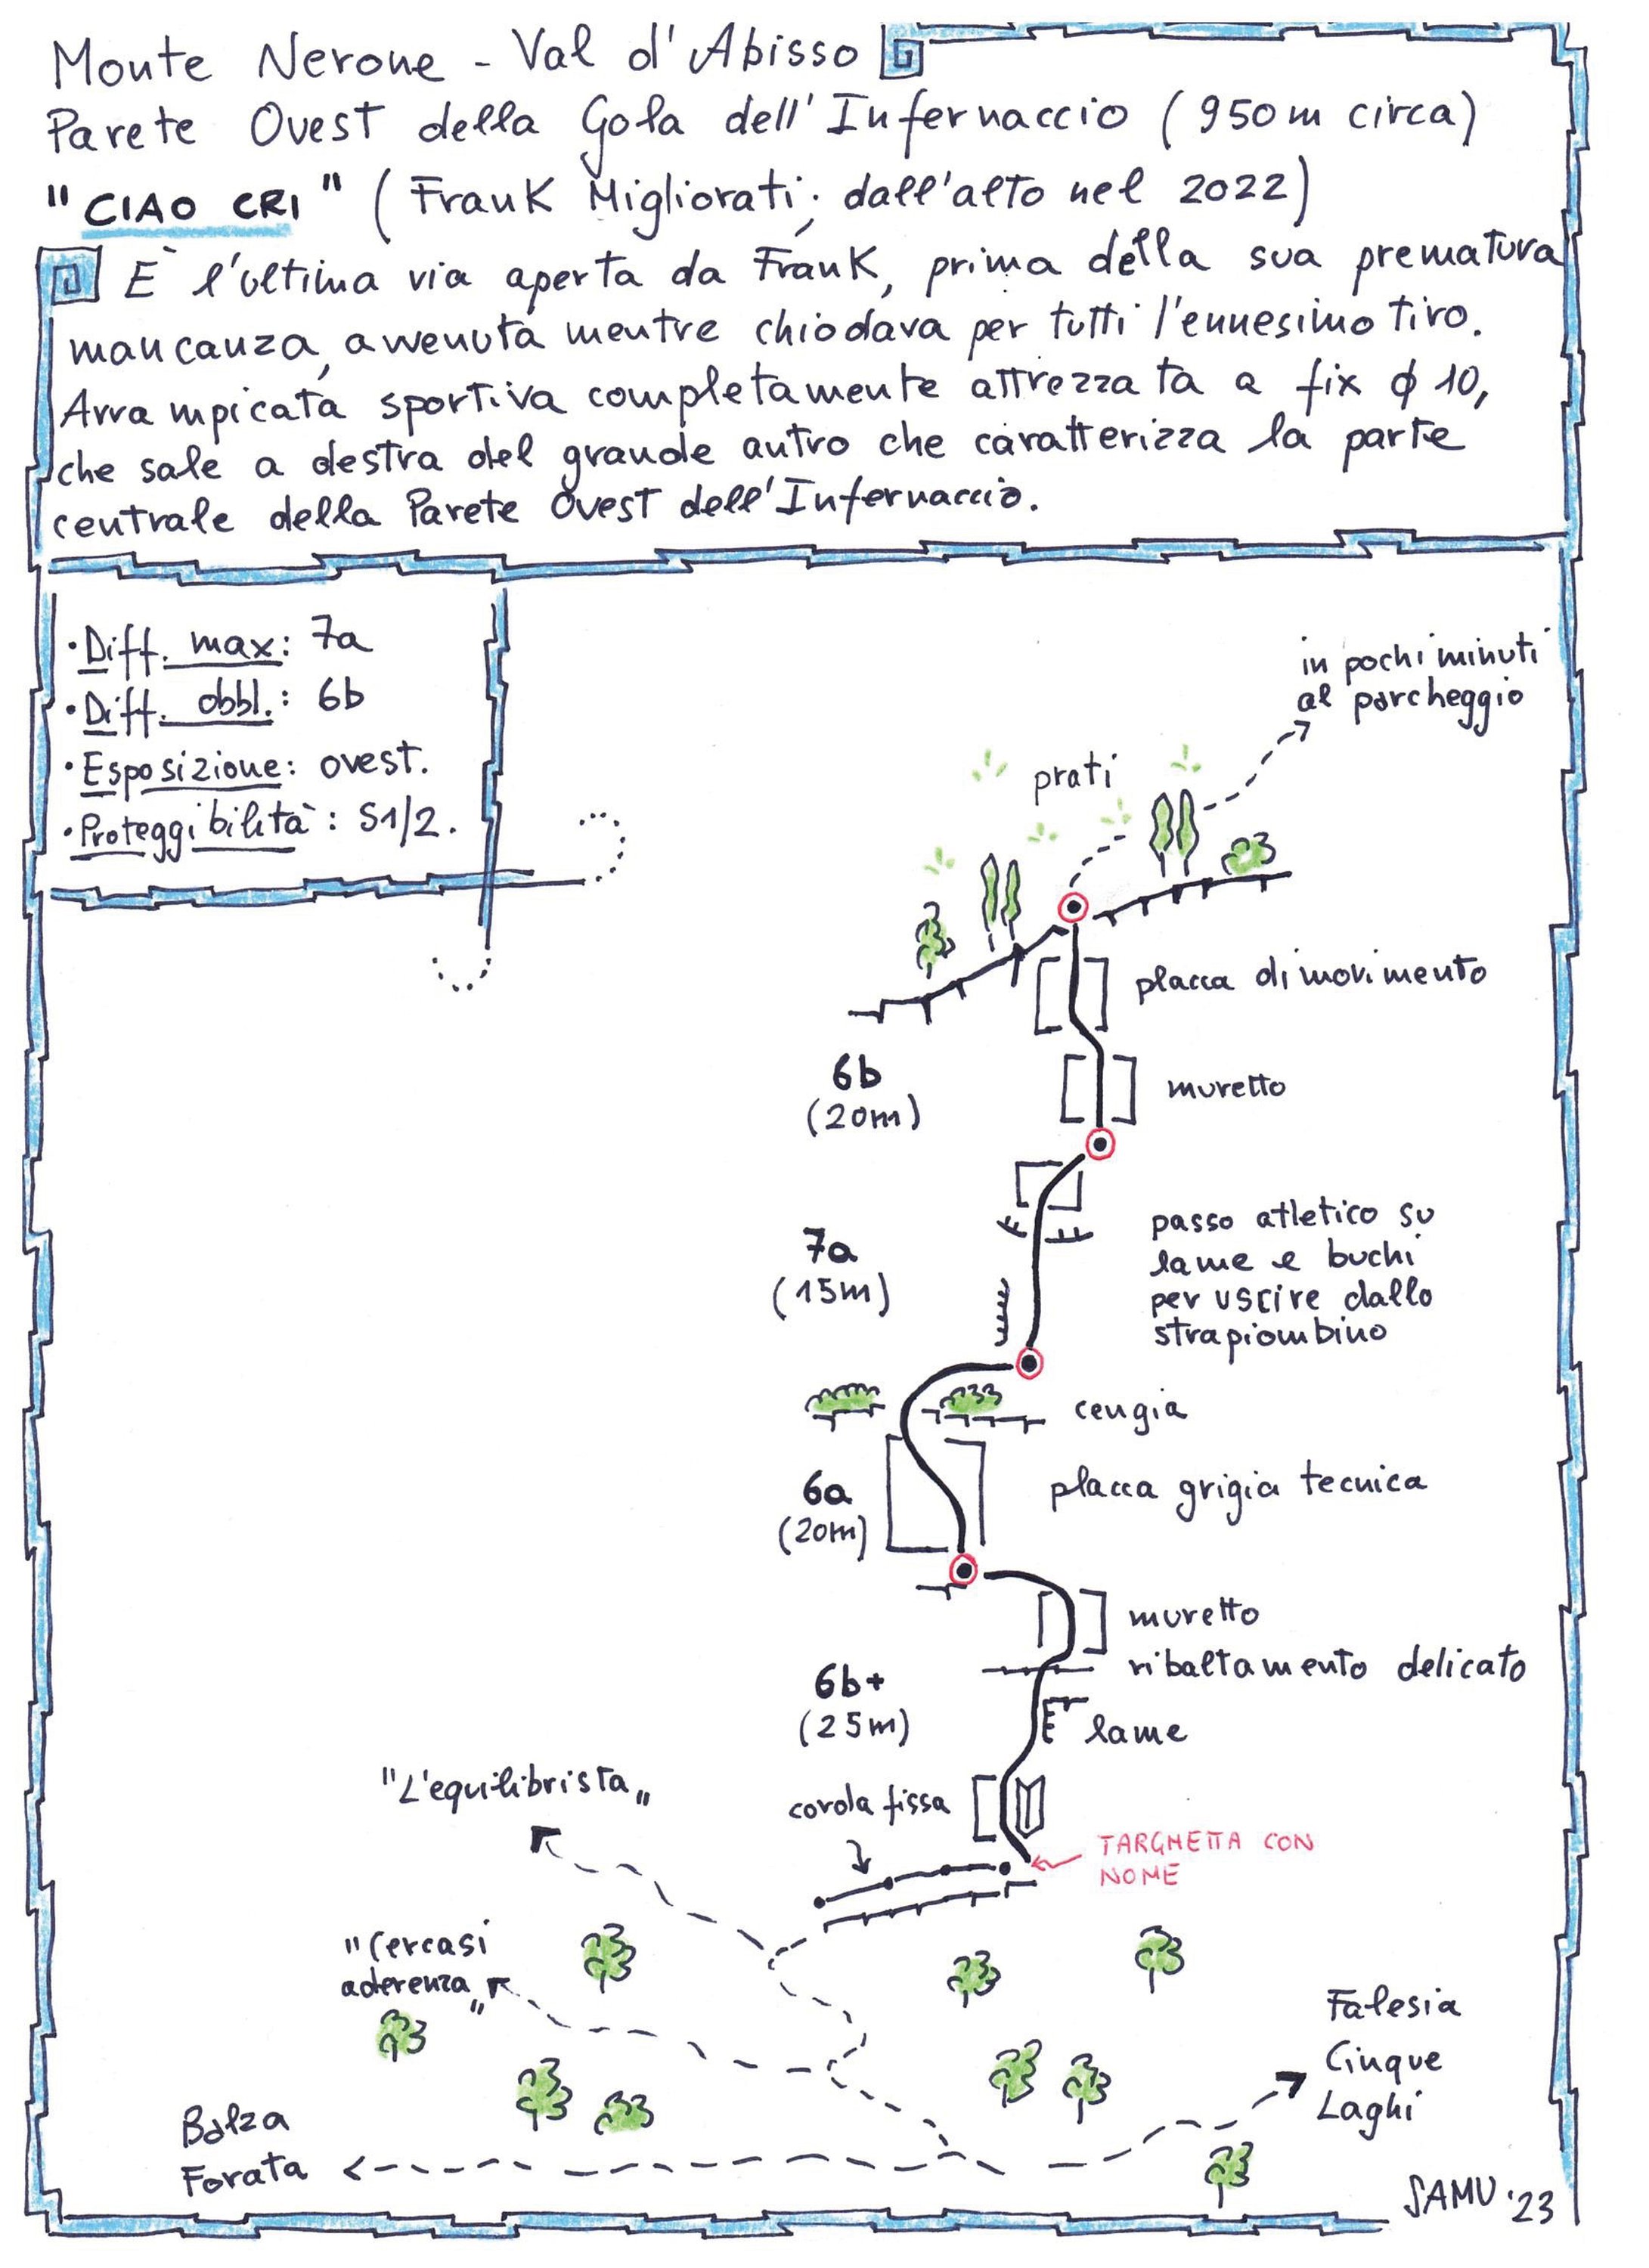 Monte Nerone - Val d'Abisso
Parete Ovest della Gola dell'Infernaccio (950m circa)
"CIAO CRI" (Frank Migliorati; dall'alto nel 2022)
È l'ultima via aperta da Frank, prima della sua prematura
mancanza, avvenuta mentre chiodava per tutti l'ennesimo tiro.
Arrampicata sportiva completamente attrezzata a fix ϕ 10,
che sale a destra del grande antro che caratterizza la parte
centrale della Parete Ovest dell'Infernaccio.
·Diff. max: 7a
·Diff. obbl.: 6b
·Esposizione: ovest.
·Proteggibilità: S1/2.
in pochi minuti
al parcheggio
prati
placca di movimento
6b
(20m)
muretto
7a
(15m)
passo atletico su
lame e buchi
per uscire dallo
strapiombino
cengia
6a
(20m)
placca grigia tecnica
muretto
ribaltamento delicato
6b+
(25m)
lame
"L'equilibrista"
corda fissa
TARGHETTA CON
NOME
"Cercasi
aderenza"
Falesia
Cinque
Laghi
Balza
Forata
SAMU '23